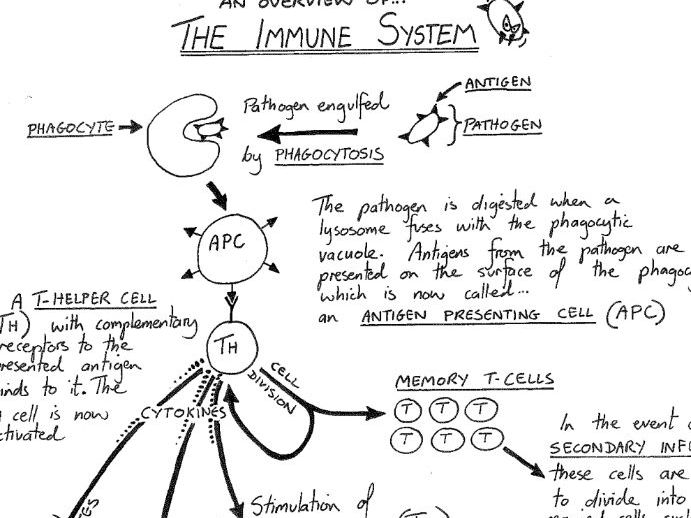 AN OVERVIEW OF...
THE IMMUNE SYSTEM
ANTIGEN
PHAGOCYTE
Pathogen engulfed
by PHAGOCYTOSIS
PATHOGEN
The pathogen is digested when a
lysosome fuses with the phagocytic
vacuole. Antigens from the pathogen are
presented on the surface of the phagoc
which is now called...
an ANTIGEN PRESENTING CELL (APC)
APC
A T-HELPER CELL
TH) with complementary
receptors to the
resented antigen
inds to it. The
cell is now
ctivated
TH
CELL
DIVISION
CYTOKINES
MEMORY T-CELLS
T T T
T T T
In the event
SECONDARY INF
these cells are
to divide into
Stimulation of